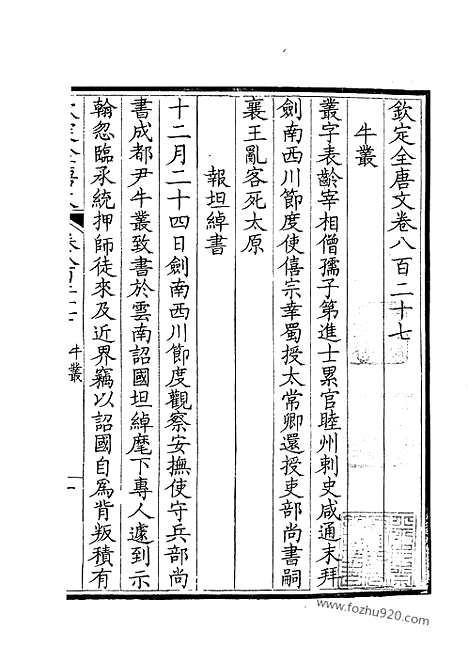 欽定全唐文卷八百二十七
牛叢
叢字表齡宰相僧孺子第進士累官睦州刺史咸通末拜
劍南西川節度使僖宗幸蜀授太常卿還授吏部尚書嗣
襄王亂客死太原
報坦綽書
十二月二十四日劍南西川節度觀察安撫使守兵部尚
書成都尹牛叢致書於雲南詔國坦綽麾下專人遽到示
翰忽臨承統押師徒來及近界竊以詔國自為背叛積有
牛叢
一
www.fozhu920.com